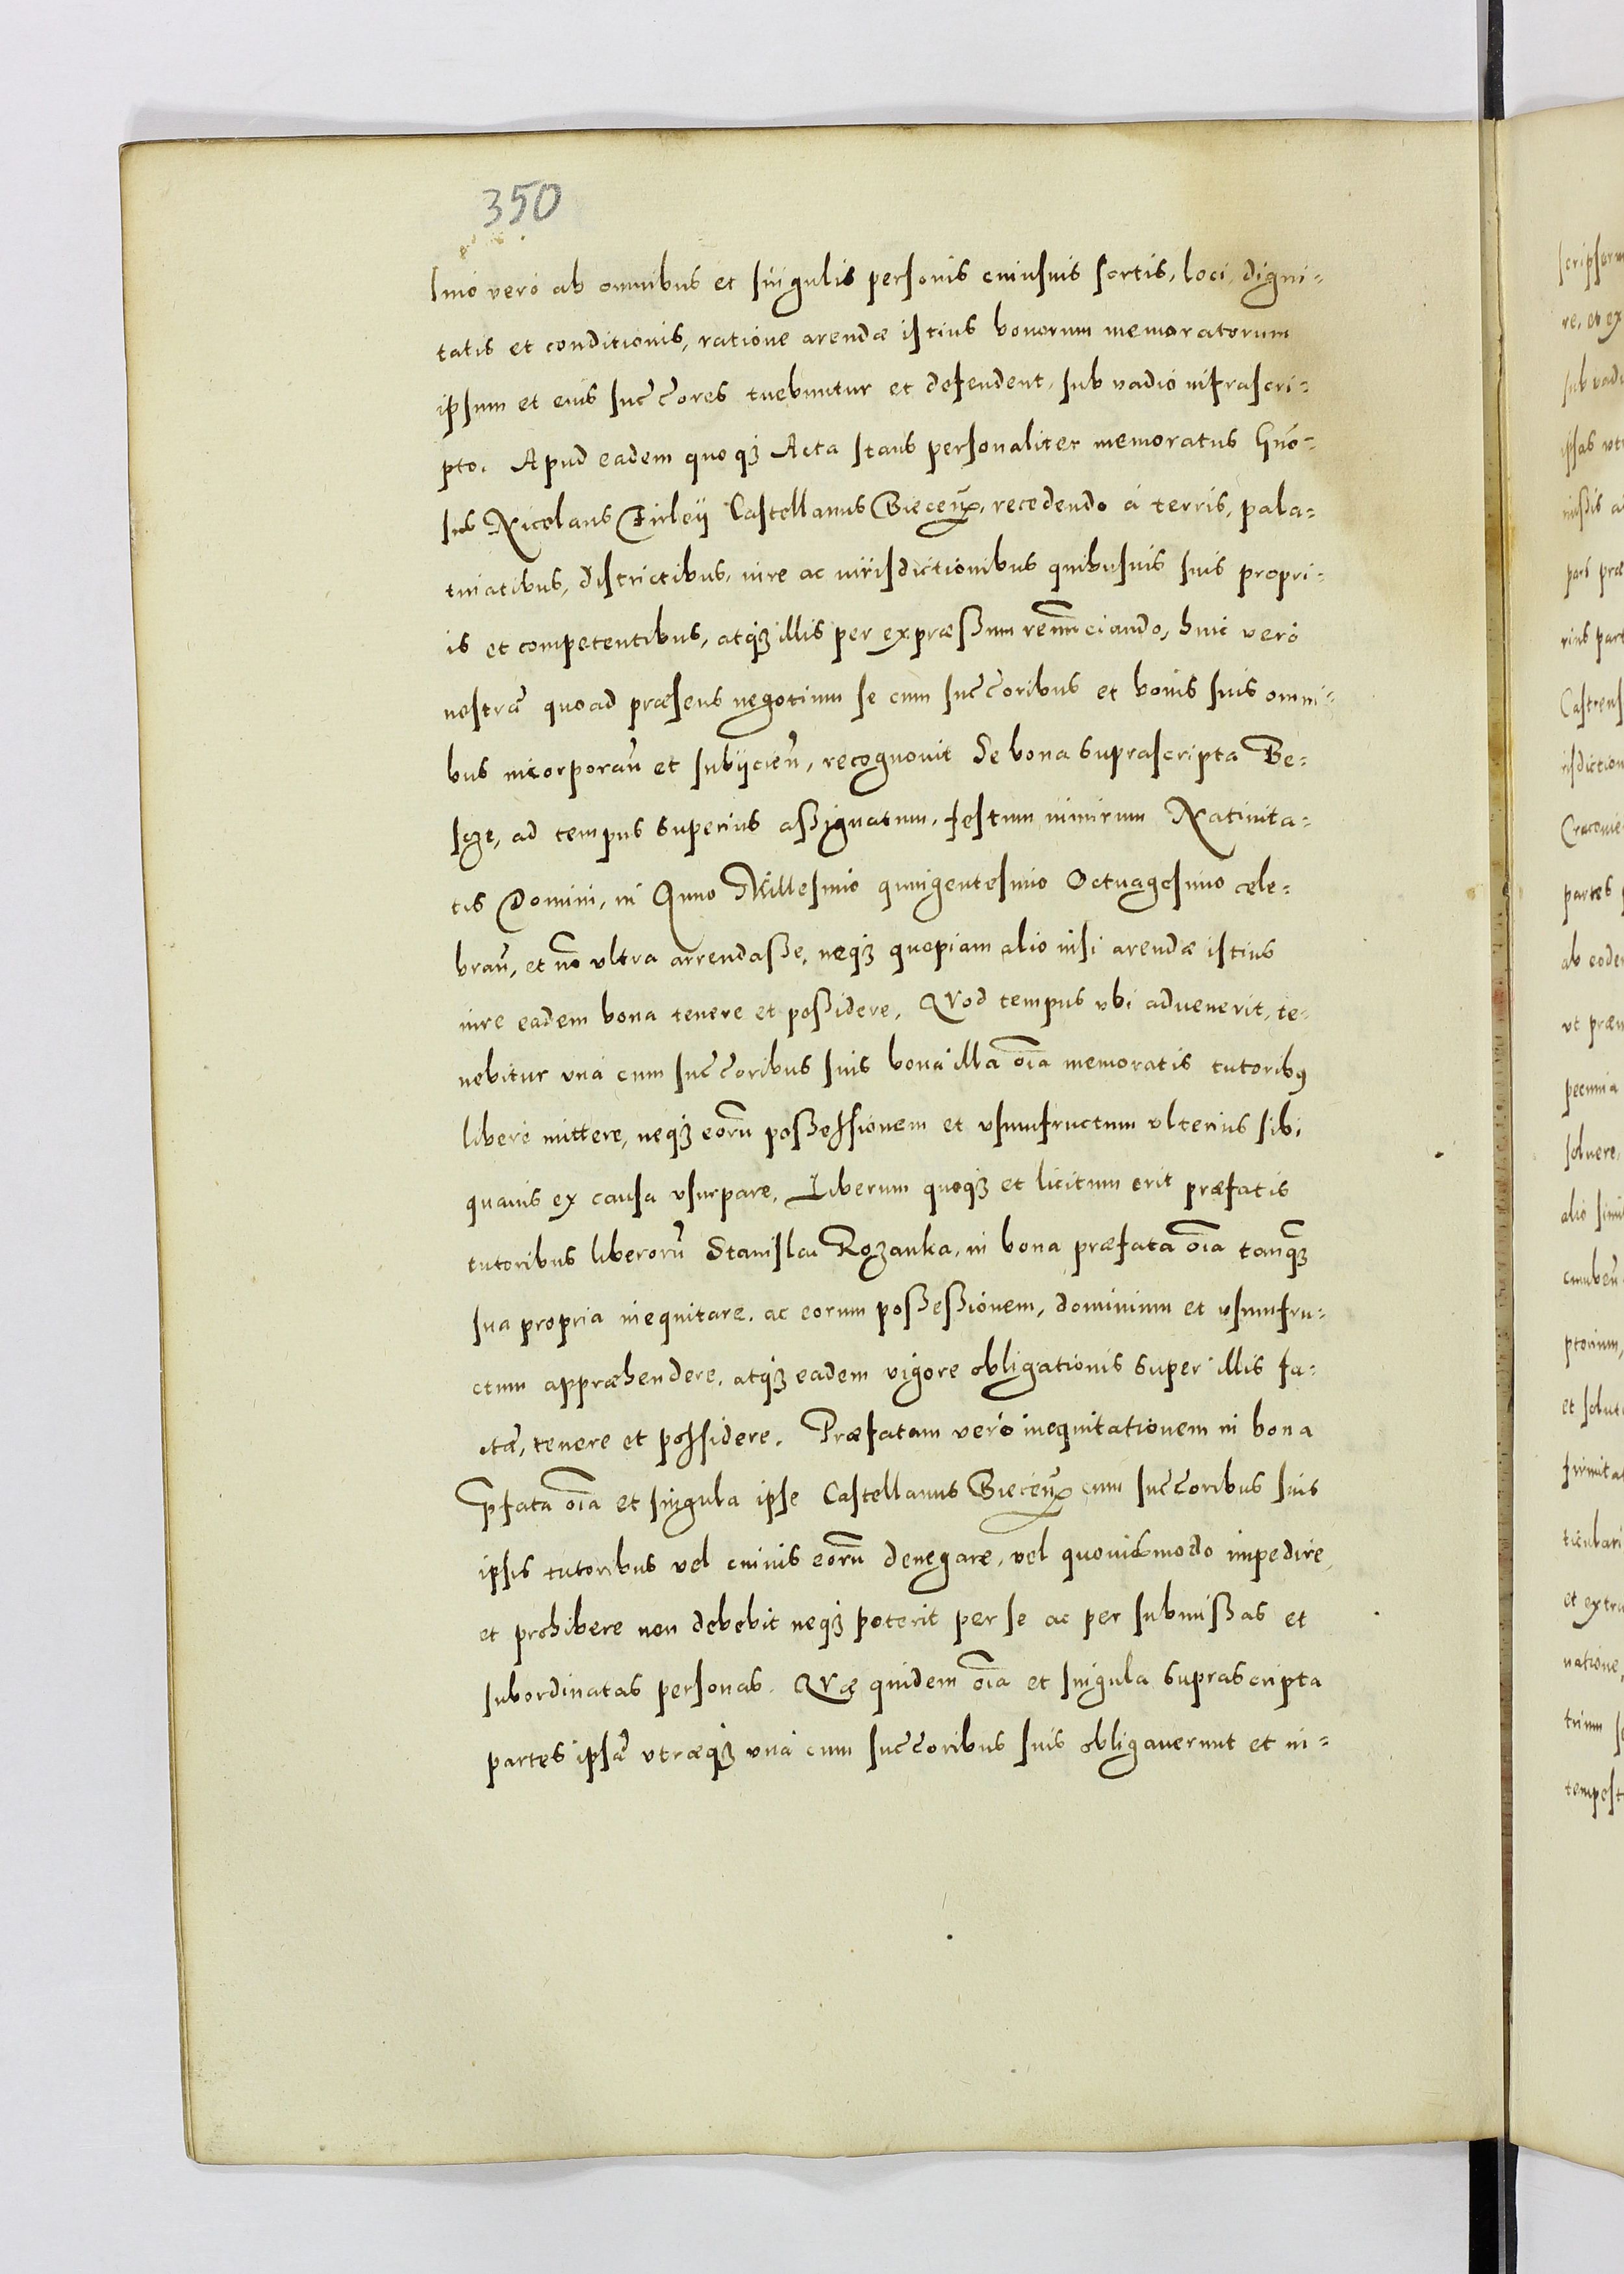 350
Imo vero ab omnibus et singulis personis cuiusuis sortis, loci, digni-
tatis et conditionis, ratione arendæ istius bonorum memoratorum
ipsum et eius succores tuebuntur et defendent, sub vadio infrascri-
pto. Apud eadem quoq3 Acta stans personaliter memoratus Gno-
sus Nicolaus Firleij Castellanus Biecen, recedendo á terris, pala-
tinatibus, districtibus, iure ac iurisdictionibus quibusuis suis propri-
is et competentibus, atq3 illis per expræssum renunciando, huic veró
nostræ quoad præsens negotium se cum succoribus et bonis suis omni-
bus incorporan et subijcien, recognouit Se bona suprascripta Be-
scze, ad tempus superius assignatum, festum nimirum Natiuita-
tis Domini, in Anno Millesimo quingentesimo Octuagesimo cele-
bran, et no vltra arrendasse, neq3 quopiam alio nisi arendæ istius
iure eadem bona tenere et possidere. Quod tempus vbi aduenerit, te-
nebitur vná cum succoribus suis bona illa oia memoratis tutoribus
liberé mittere, neq3 eoru possessionem et vsumfructum vlterius sibi
quauis ex causa vsurpare. Liberum quoq3 et licitum erit præfatis
tutoribus liberoru Stanislai Rozanka, in bona præfata oia tanq3
sua propria inequitare, ac eorum possessionem, dominium et vsumfru-
ctum appræhendere, atq3 eadem vigore obligationis super illis fa-
ctæ, tenere et possidere. Præfatam veró inequitationem in bona
pfata oia et singula ipse Castellanus Biecen cum succoribus suis
ipsis tutoribus vel cuiuis eoru denegare, vel quouismodo impedire,
et prohibere non debebit neq3 poterit per se ac per submissas et
subordinatas personas. Quæ quidem oia et singula suprascripta
partes ipsæ vtræq3 vná cum succoribus suis obligauerunt et in-